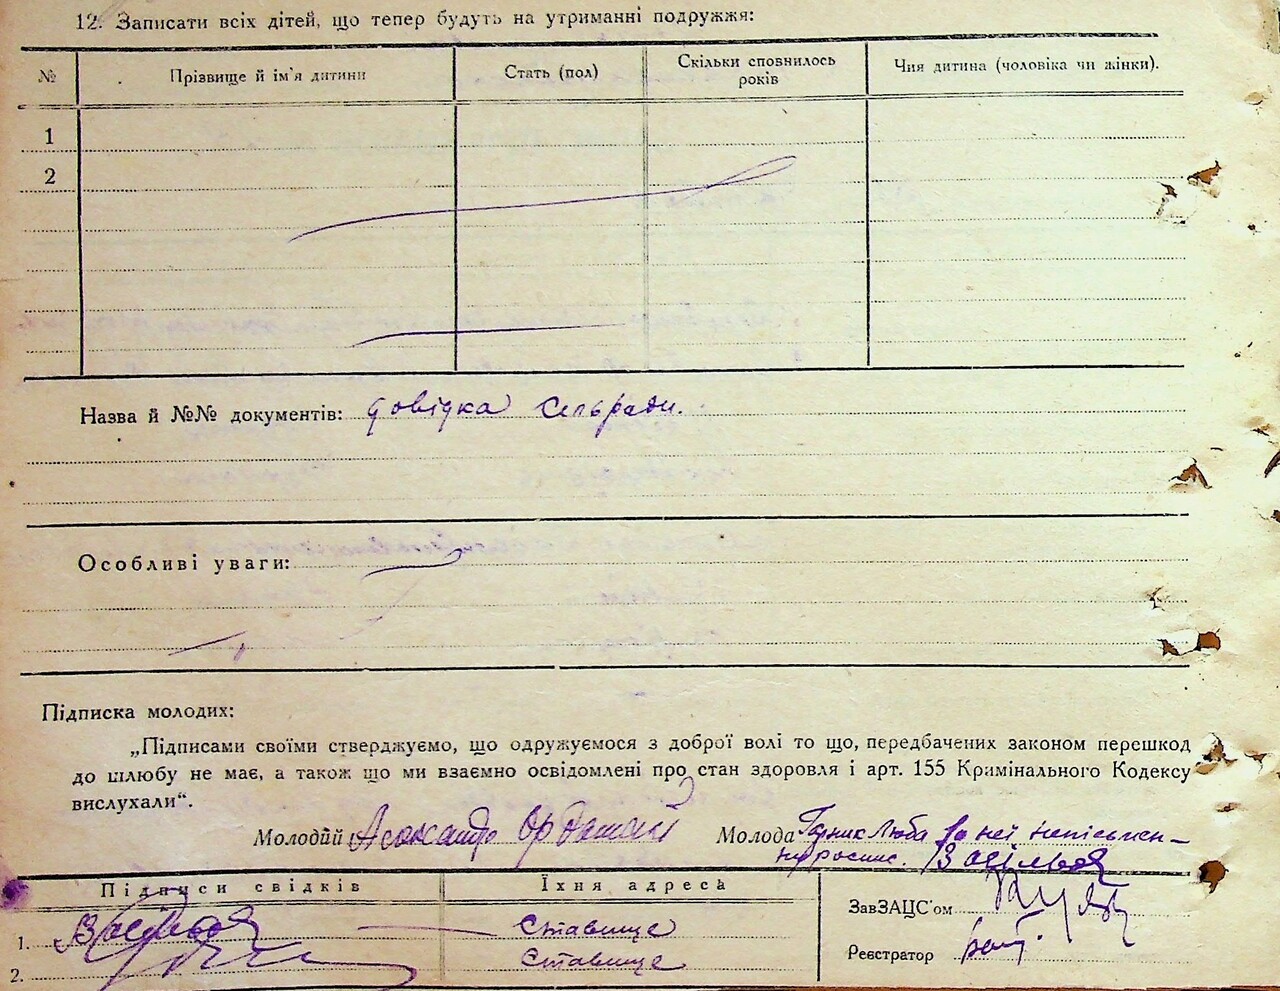 12. Записати всіх дітей, що тепер будуть на утриманні подружжя:
№ Прізвище й ім'я дитини Стать (пол) Скільки сповнилось років Чия дитина (чоловіка чи жінки).
1
2
Назва й №№ документів: довідка сельради.
Особливі уваги:
Підписка молодих:
„Підписами своїми стверджуємо, що одружуємося з доброї волі то що, передбачених законом перешкод
до шлюбу не має, а також що ми взаємно освідомлені про стан здоровля і арт. 155 Кримінального Кодексу
вислухали“.
Молодий Молода Люба за неї непісьмен-
Підписи свідків Їхня адреса
ЗавЗАЦС'ом
1. Ставище
Реєстратор
2. Ставище